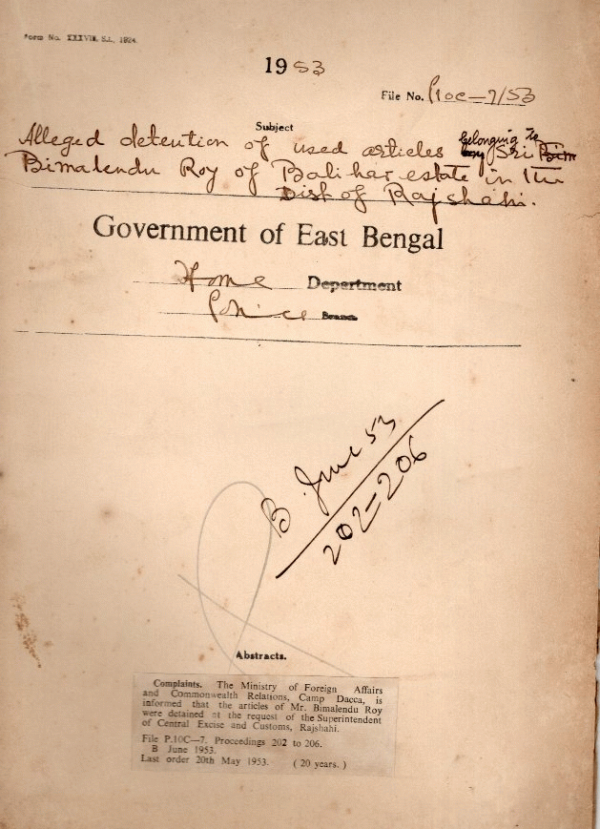 Form No. XXXVIII, S.I., 1924.
1953
File No. P10C-7/53
Subject
Alleged detention of used articles belonging to Sri
Bimalendu Roy of Balihar estate in the
Dist of Rajshahi.
Government of East Bengal
Home Department
Police Branch
B. June 53
202-206
Abstracts.
Complaints. The Ministry of Foreign Affairs
and Commonwealth Relations, Camp Dacca, is
informed that the articles of Mr. Bimalendu Roy
were detained at the request of the Superintendent
of Central Excise and Customs, Rajshahi.
File P.10C—7. Proceedings 202 to 206.
B June 1953.
Last order 20th May 1953. ( 20 years. )